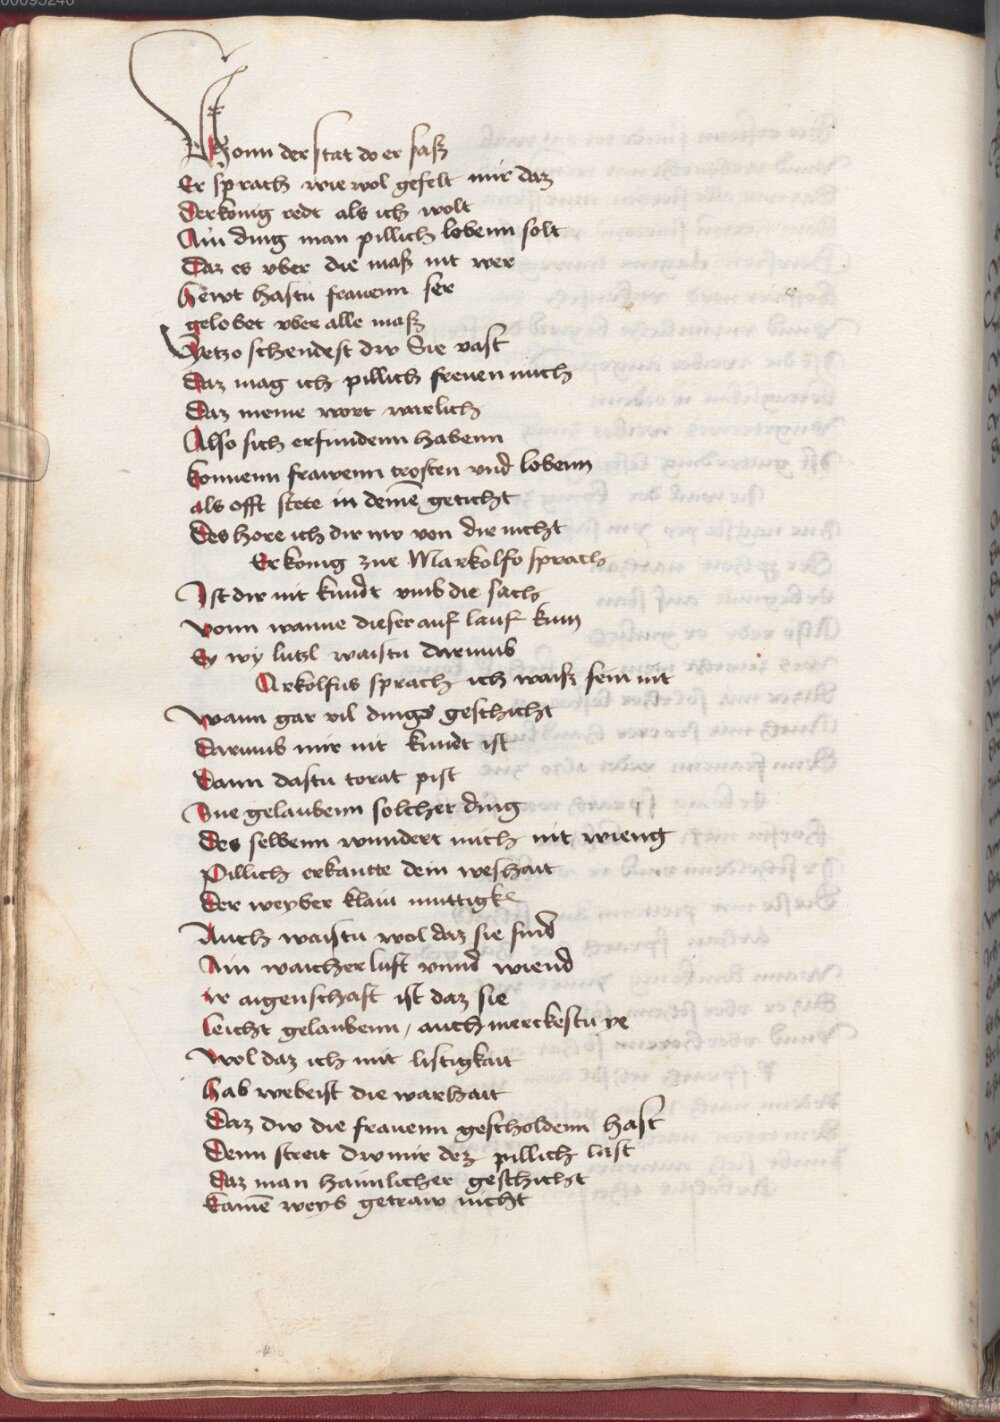 Vonn der stat do er saß
Er sprach wie wol gefelt mir daz
Der konig redt als ich wolt
Ain ding man pillich lobenn solt
Daz es vber die maß nit wer
hewt hastu frauenn ser
gelobet vber alle maß
Yetzo schendest dw Sie vast
Daz mag ich pillich freuen mich
Daz meine wort warlich
Also sich erfundenn habenn
konnenn frawenn trosten vnd lobenn
als offt stete in deinē geticht
Des hore ich dir nw von die nicht
Er konig zue Markolfo sprach
Ist dir nit kundt vmb die sach
vonn wanne dieser auf lauf kum
Ey wy lutzl waistu darumb
Arkolfus sprach ich waiß sein nit
wann gar vil dings geschicht
Darumb mir nit kundt ist
Dann dastu torat pist
Zue gelaubenn solcher ding
Des selbenn wundert mich nit wieng
Pillich erkantte dein weshait
Der weyber klain muttigk
Auch waistu wol daz sie sind
Ain waicher luft vnnd wiend
ir aigenschaft ist daz sie
leicht gelaubenn / auch merckestu ye
wol daz ich mit listigkait
hab webeist die warhait
Daz dw die frauenn gescholdenn hast
Denn streit dw mir dez pillich last
Daz man haimlicher geschicht
kainē weyb getraw nicht